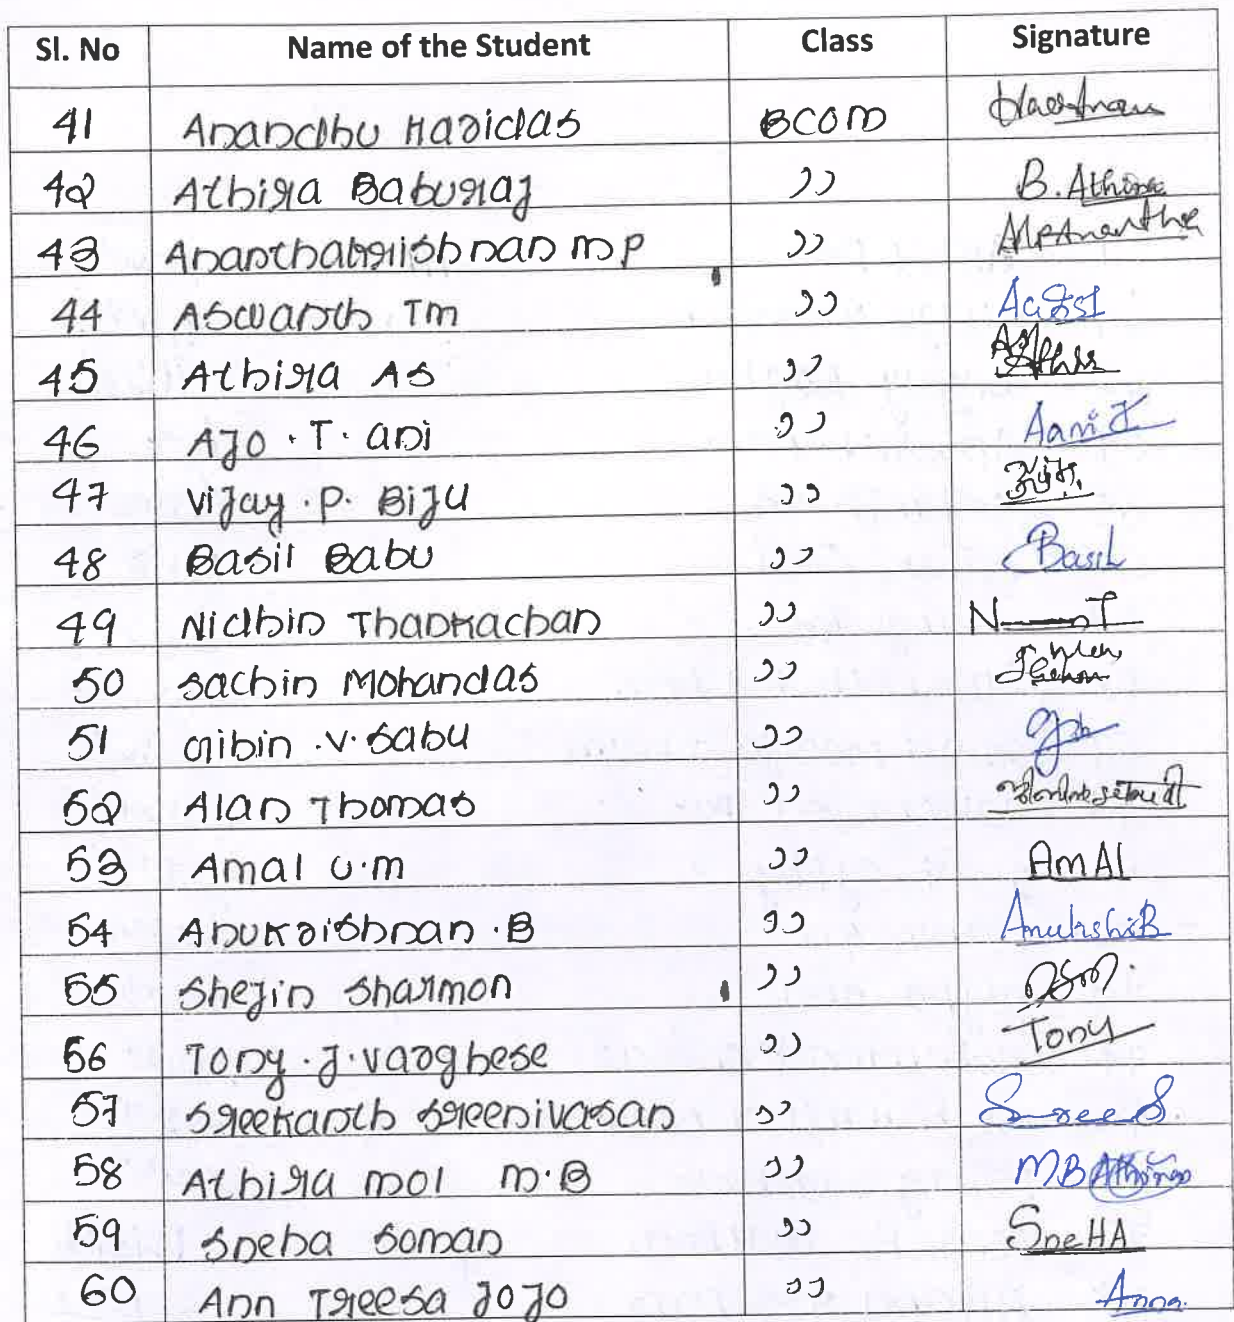 Sl. No Name of the Student Class Signature
41 Anandhu Haridas BCOM
42 Athira Baburaj " B. Athira
43 Ananthakrishnan m p "
44 Aswanth Tm "
45 Athira As "
46 AJO . T . ani "
47 Vijay . P. BiJu "
48 Basil Babu " Basil
49 Nidhin Thankachan " N T
50 sachin Mohandas "
51 Jibin .V. Sabu "
52 Alan Thomas "
53 Amal U.m " AmAl
54 Anukrishnan . B "
55 Shejin Sharmon "
56 Tony . J . Varghese " Tony
57 Sreekanth Sreenivasan " Sree S.
58 Athira mol m.B " M B Athira
59 Sneha Soman " SneHA
60 Ann Treesa JoJo "